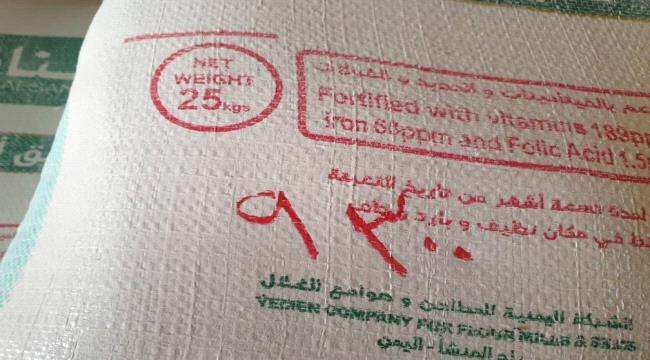 NET
WEIGHT
25 kgs
بالفيتامينات و الحديد
Fortified with vitamins
Iron 60ppm and Folic Acid 1.5
لمدة تسعة أشهر من تاريخ التعبئة
في مكان نظيف و بارد
٩٣٠٠
الشركة اليمنية للمطاحن و صوامع الغلال
YEMEN COMPANY FOR FLOUR MILLS & SILOS
المنشأ - اليمن